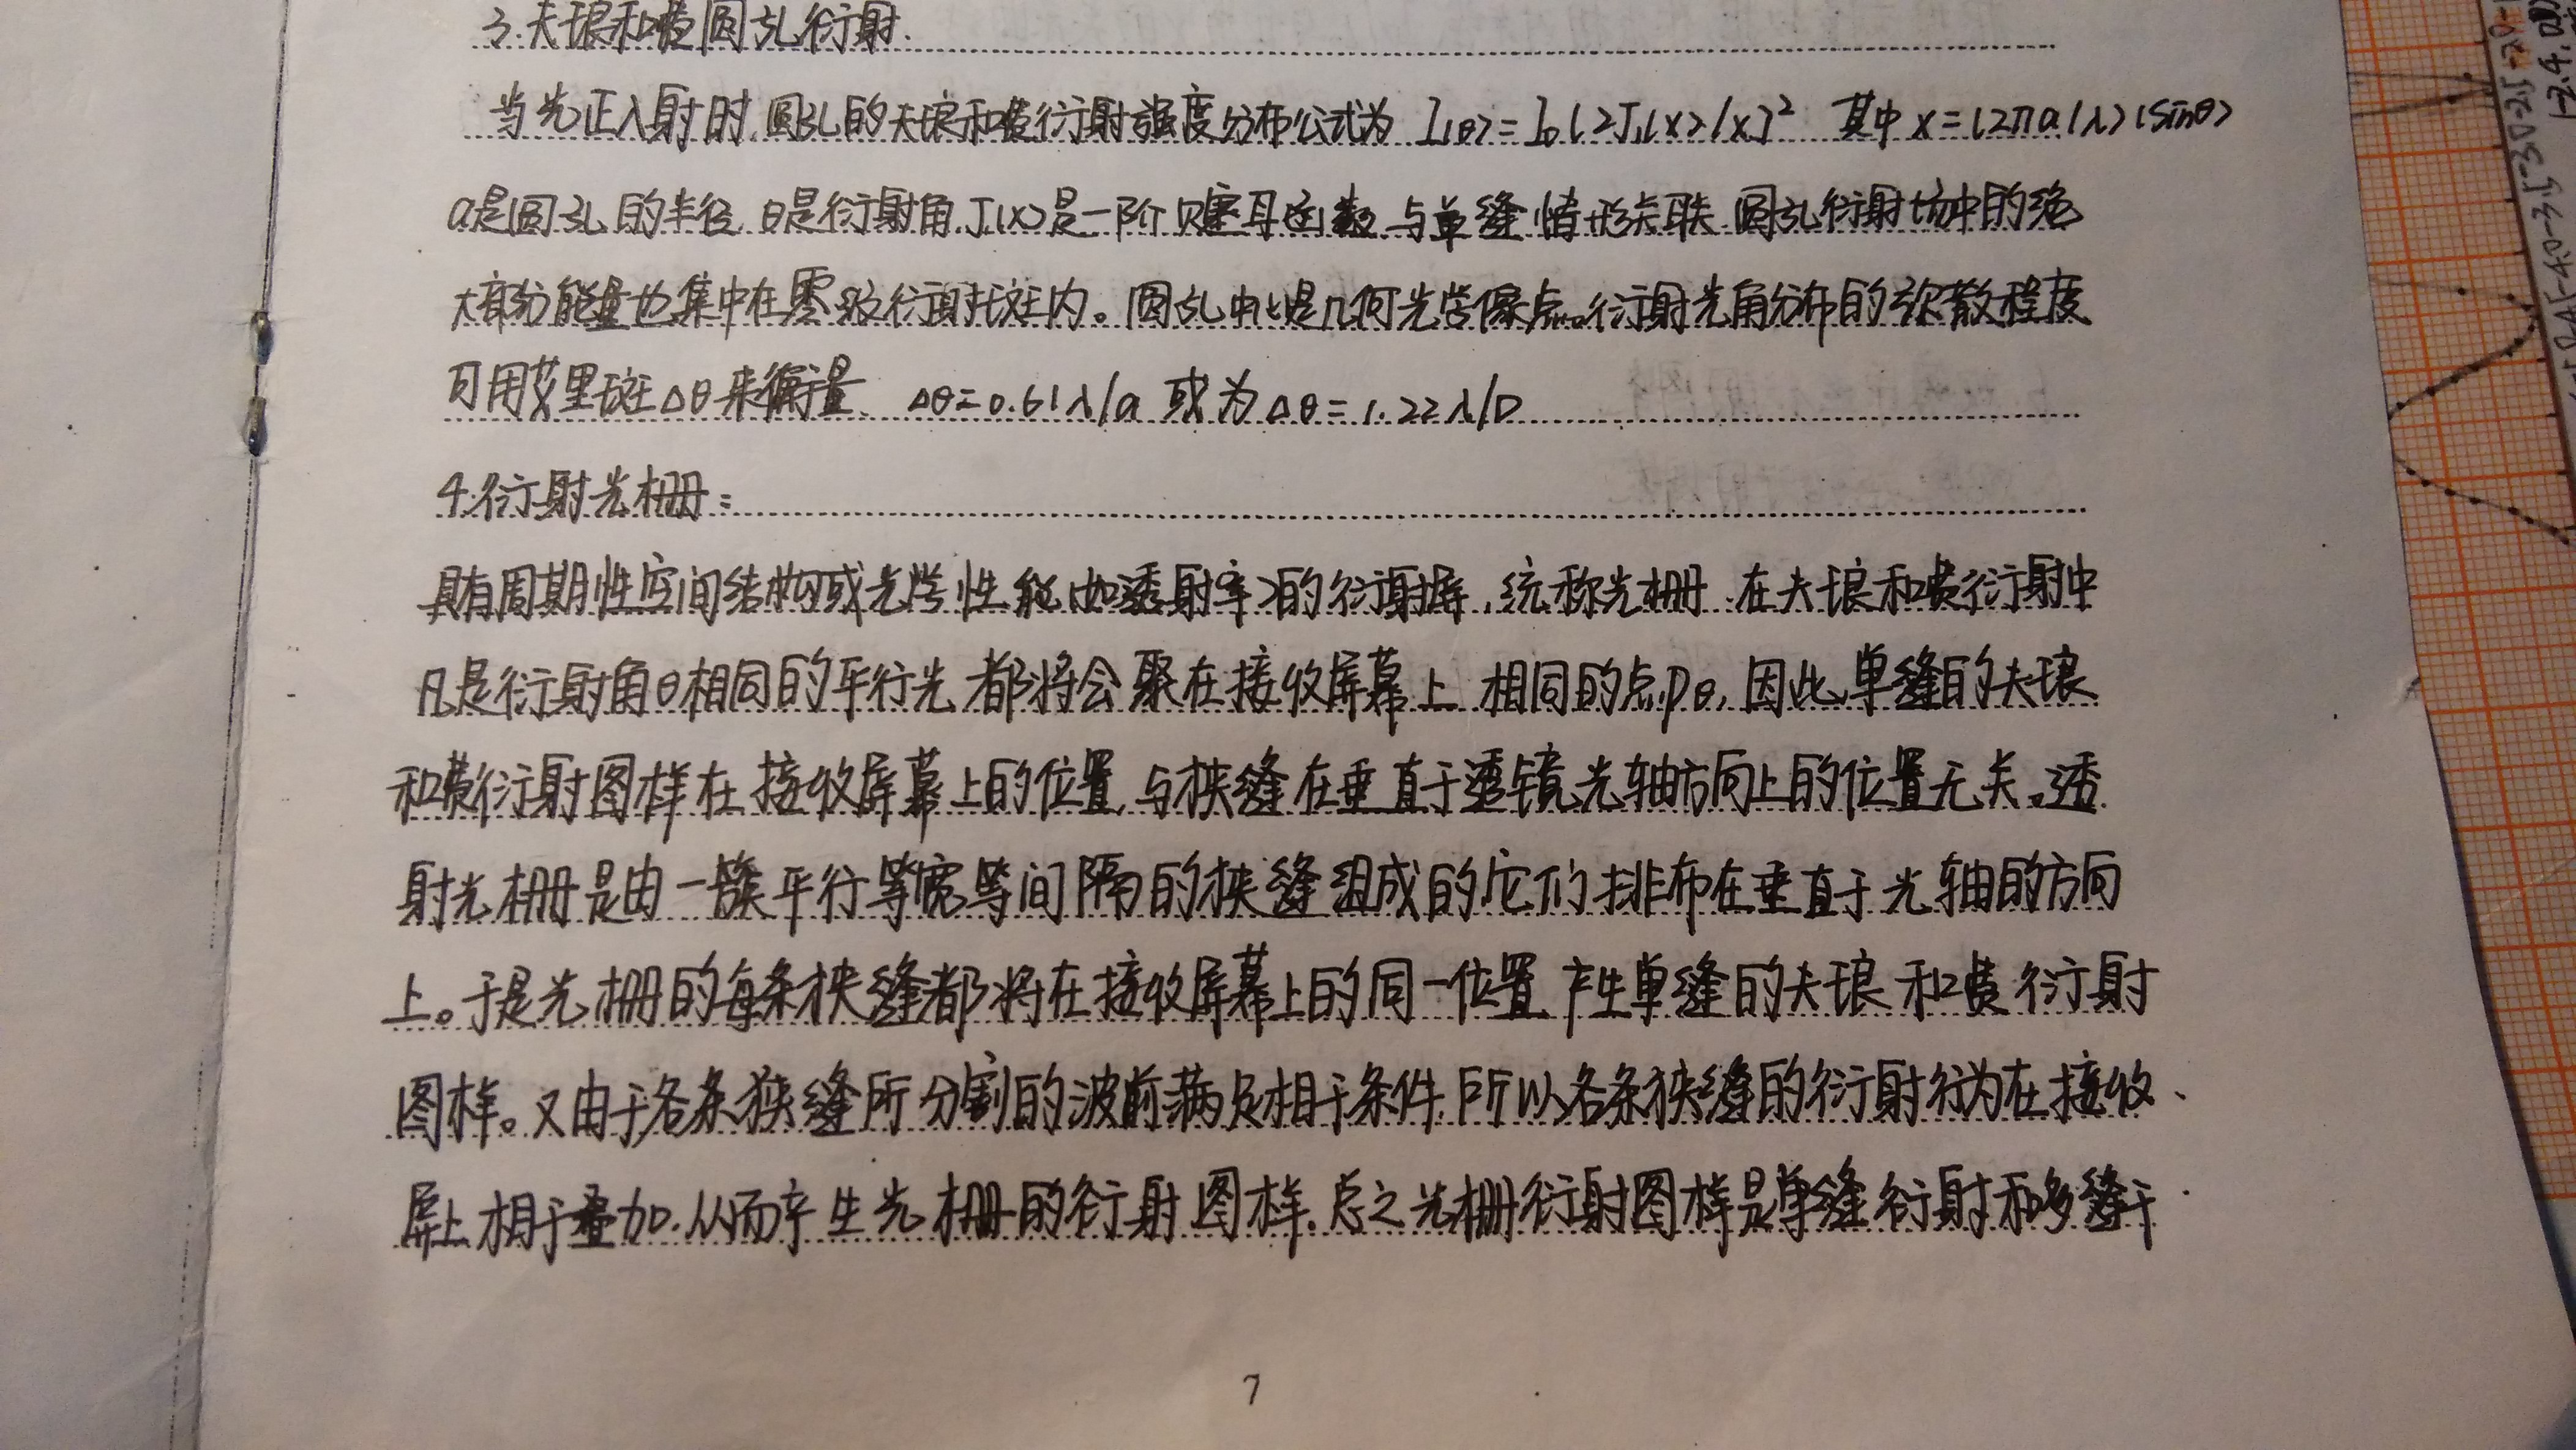 3.夫琅和费圆孔衍射.
当光正入射时,圆孔的夫琅和费衍射强度分布公式为 I(θ)=I₀[2J₁(x)/x]² 其中 x=(2πa/λ)(sinθ)
a是圆孔的半径,θ是衍射角,J₁(x)是一阶贝塞耳函数,与单缝情形关联.圆孔衍射场中的绝
大部分能量也集中在零级衍射斑内。圆孔中心是几何光学像点。衍射光角分布的弥散程度
可用艾里斑△θ来衡量、△θ=0.61λ/a 或为△θ=1.22λ/D
4.衍射光栅:
具有周期性空间结构或光学性能(如透射率)的衍射屏,统称光栅.在夫琅和费衍射中
凡是衍射角θ相同的平行光 都将会聚在接收屏幕上 相同的点Pθ,因此,单缝的夫琅
和费衍射图样在接收屏幕上的位置,与狭缝在垂直于透镜光轴方向上的位置无关。透
射光栅是由一簇平行等宽等间隔的狭缝组成的它们排布在垂直于光轴的方向
上。于是光栅的每条狭缝都将在接收屏幕上的同一位置,产生单缝的夫琅和费衍射
图样。又由于各条狭缝所分割的波前满足相干条件,所以各条狭缝的衍射行为在接收
屏上相干叠加.从而产生光栅的衍射图样.总之光栅衍射图样是单缝衍射和多缝干
7